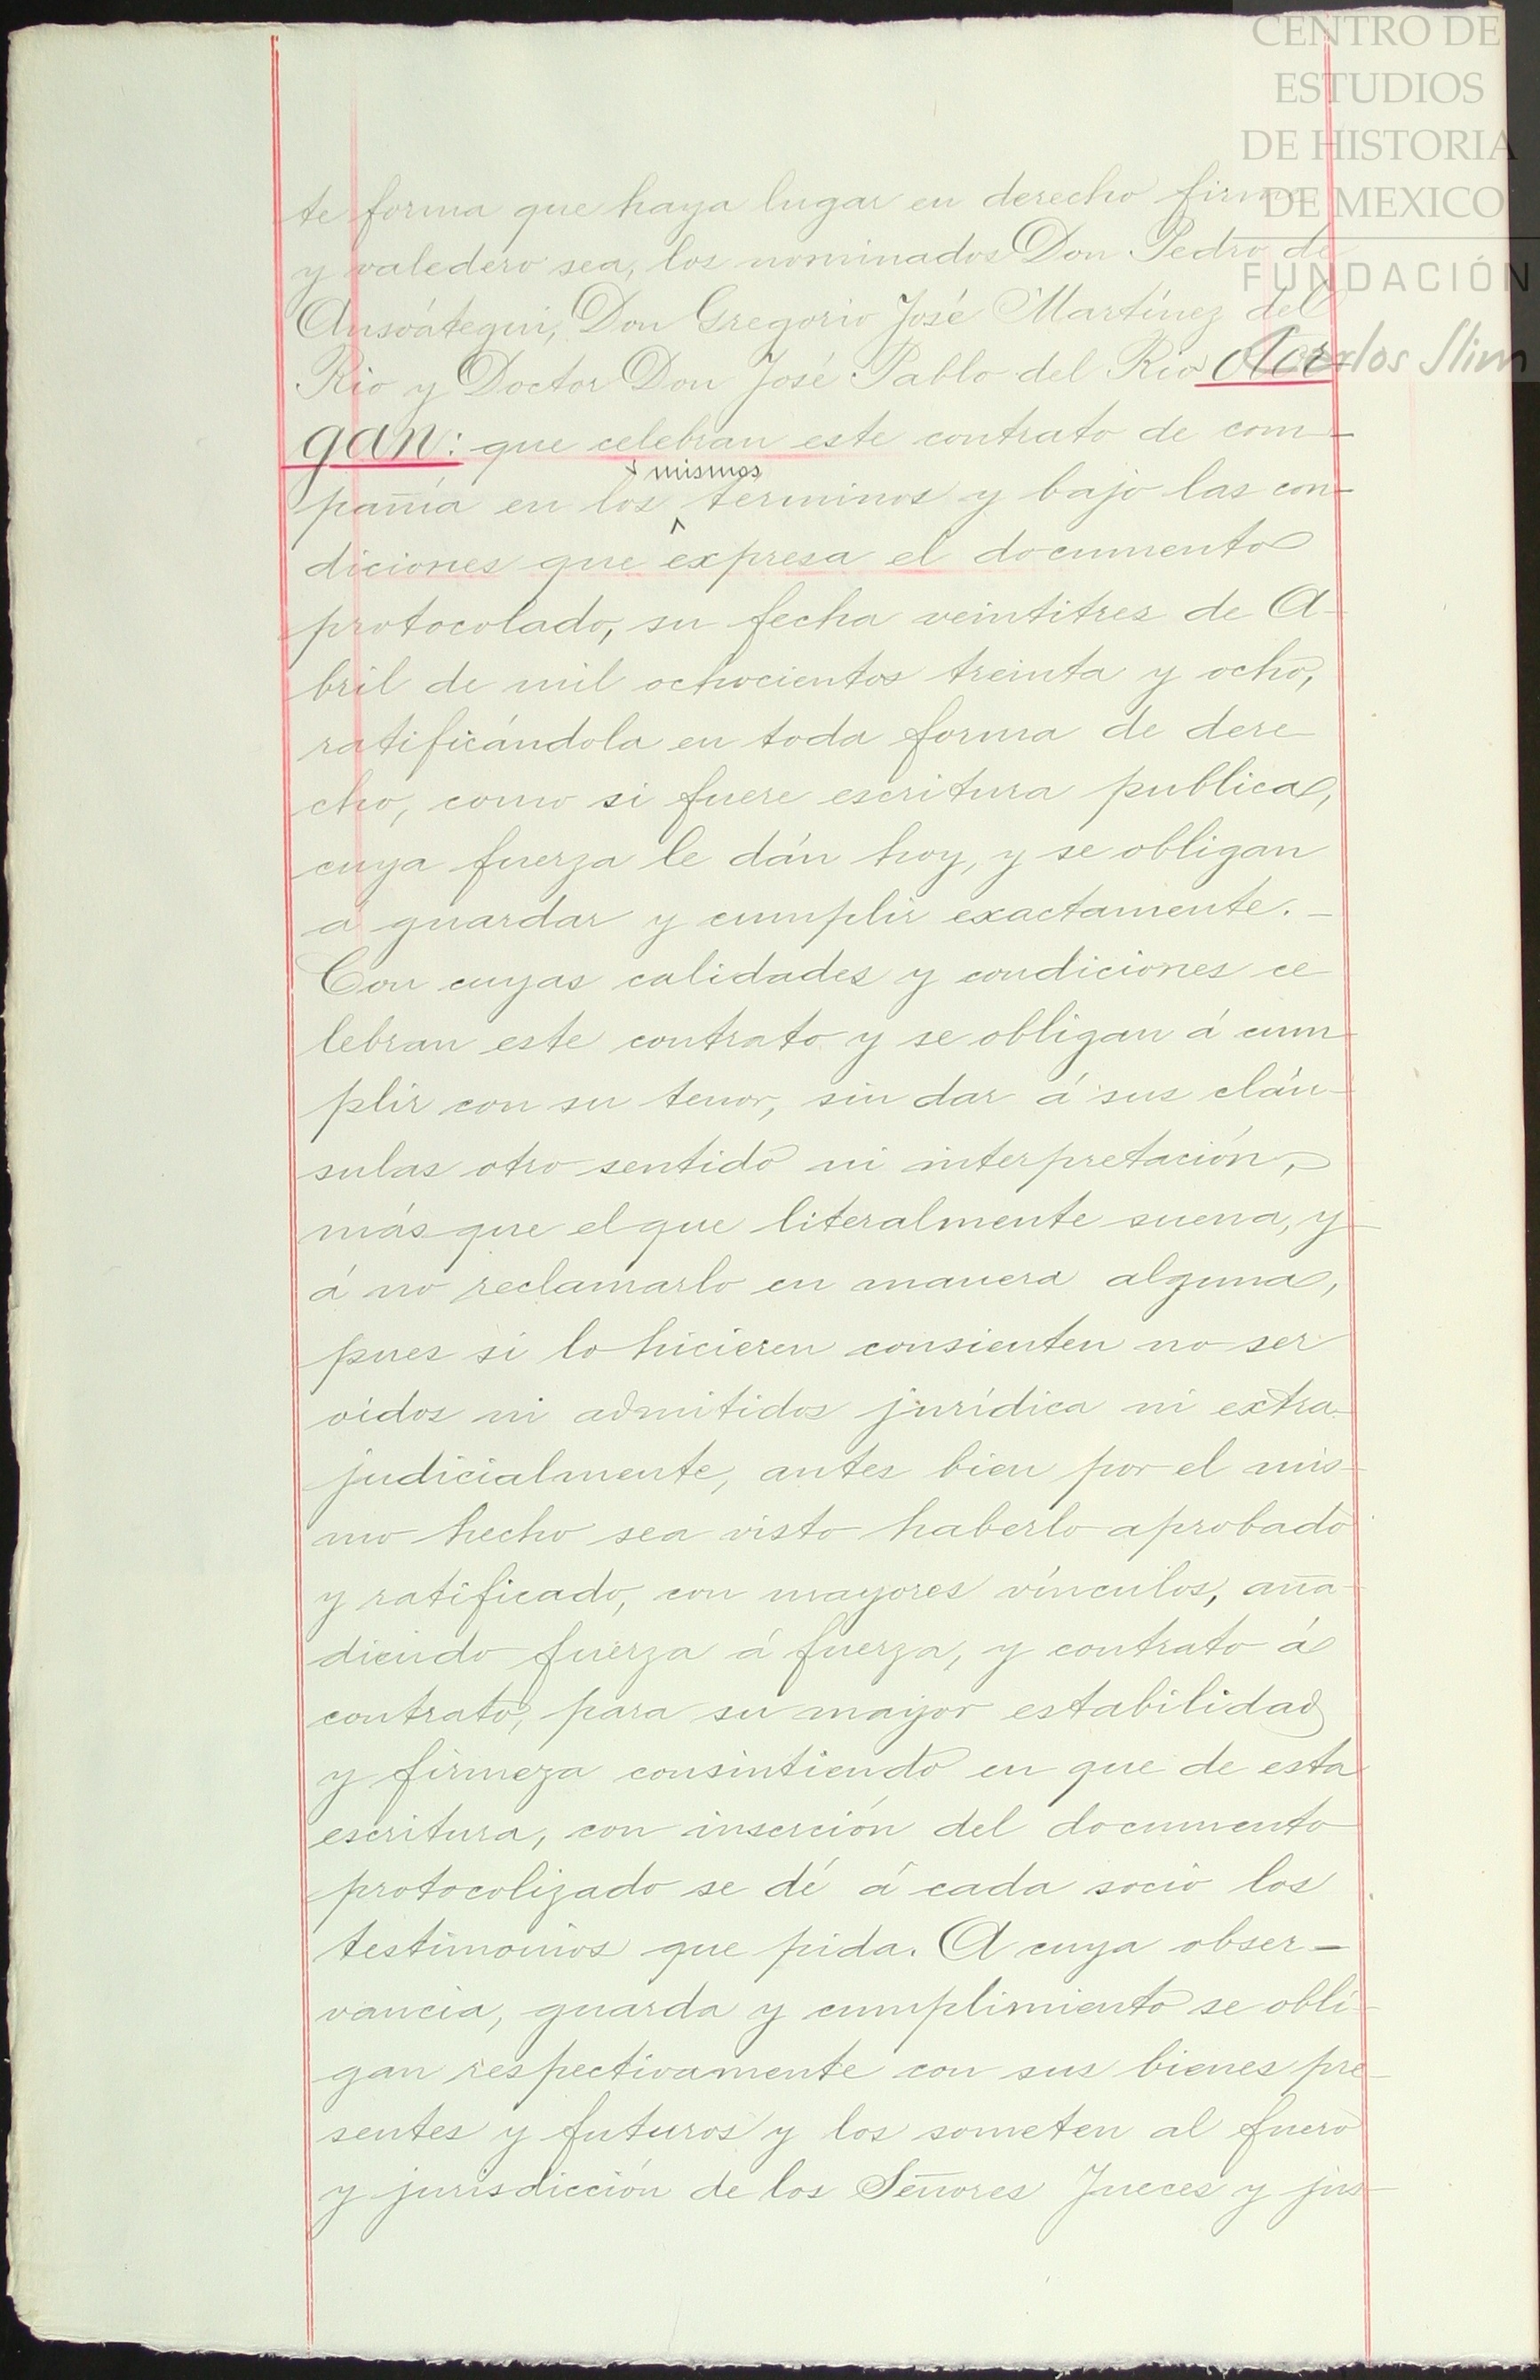 CENTRO DE
ESTUDIOS
DE HISTORIA
DE MEXICO
FUNDACIÓN
Carlos Slim
te forma que haya lugar en derecho firme
y valedero sea, los nominados Don Pedro de
Ansoátegui, Don Gregorio José Martínez del
Rio y Doctor Don José Pablo del Rio Otor
gan: que celebran este contrato de com-
mismos
pañía en los terminos y bajo las con-
diciones que expresa el documento
protocolado, su fecha veintitres de A-
bril de mil ochocientos treinta y ocho,
ratificándola en toda forma de dere
cho, como si fuere escritura publica,
cuya fuerza le dán hoy, y se obligan
a guardar y cumplir exactamente. -
Con cuyas calidades y condiciones ce
lebran este contrato y se obligan á cum
plir con su tenor, sin dar á sus cláu-
sulas otro sentido ni interpretación,
más que el que literalmente suena, y
á no reclamarlo en manera alguna,
pues si lo hicieren consienten no ser
oidos ni admitidos jurídica ni extra
judicialmente, antes bien por el mis-
mo hecho sea visto haberlo aprobado
y ratificado, con mayores vínculos, aña-
diendo fuerza á fuerza, y contrato á
contrato, para su mayor estabilidad
y firmeza consintiendo en que de esta
escritura, con inserción del documento
protocolizado se dé á cada socio los
testimonios que pida. A cuya obser-
vancia, guarda y cumplimiento se obli-
gan respectivamente con sus bienes pre-
sentes y futuros y los someten al fuero
y jurisdicción de los Señores Jueces y jus-